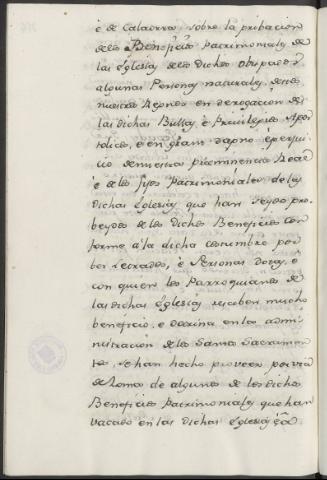 è de Calaorra, sobre la probacion
de los Beneficios patrimoniales de
las Eglesias de los dichos Obispados
algunas Personas naturales destos
nuestros Reynos en derogacion de
las dichas Bullas, è Previlegios Apos
tolicos, è en grant dapno, è perjui
cio de nuestra preeminencia Real
è de los fijos Patrimoniales de las
dichas Eglesias que han seydo pro
beydos de los dichos Beneficios con
forme à la dicha costumbre por
ser Letrados, è Personas dotas, è
con quien los Parroquianos de
las dichas Eglesias resciben mucho
beneficio, è dotrina en la admi
nistracion de los Santos Sacramen
tos, se han hecho proveer por via
de Roma de algunos de los dichos
Beneficios Patrimoniales que han
vacado en las dichas Eglesias